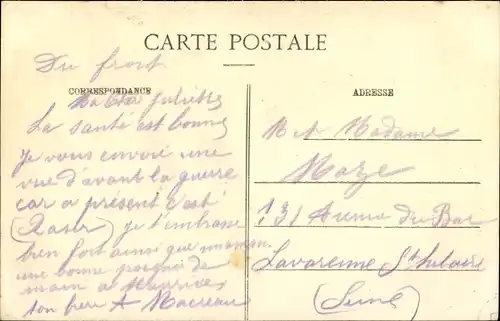 CARTE POSTALE
Du front
CORRESPONDANCE
Ma Chère Juliette
La santé est bonne
Je vous envoie une
vue d'avant la guerre
car a présent c'est
(Raser) je t'embrasse
bien fort ainsi que maman
une bonne poignée de
main a Maurice
ton frère A
ADRESSE
M et Madame
Maze
131 Avenue du Bac
Lavarenne St hilaire
(Seine)